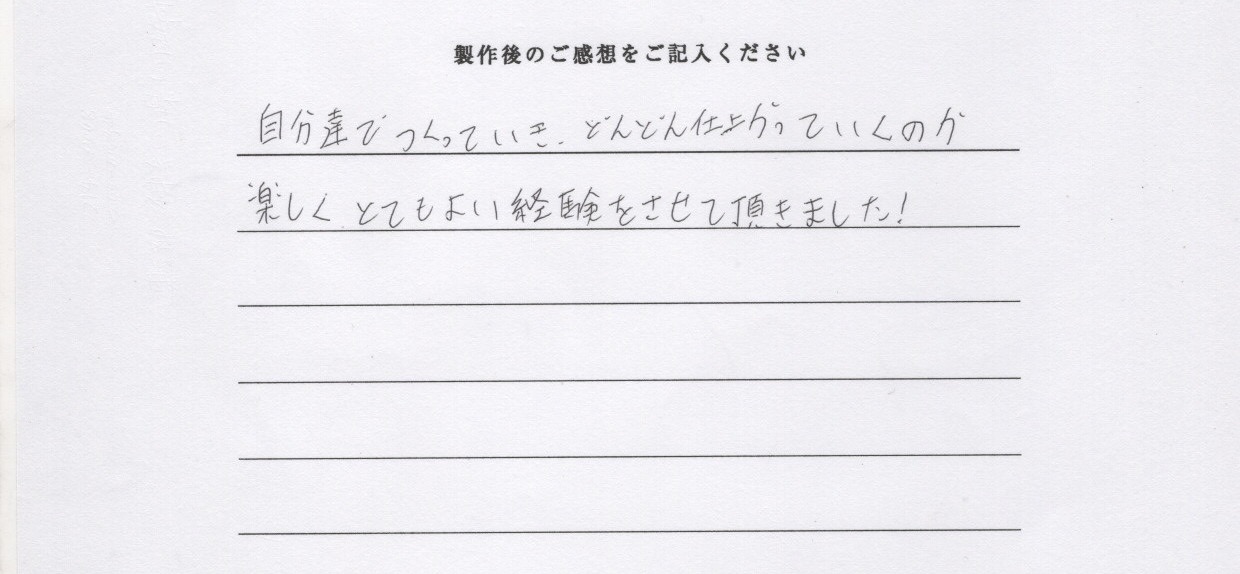 製作後のご感想をご記入ください
自分達でつくっていき、どんどん仕上がっていくのが
楽しくとてもよい経験をさせて頂きました!